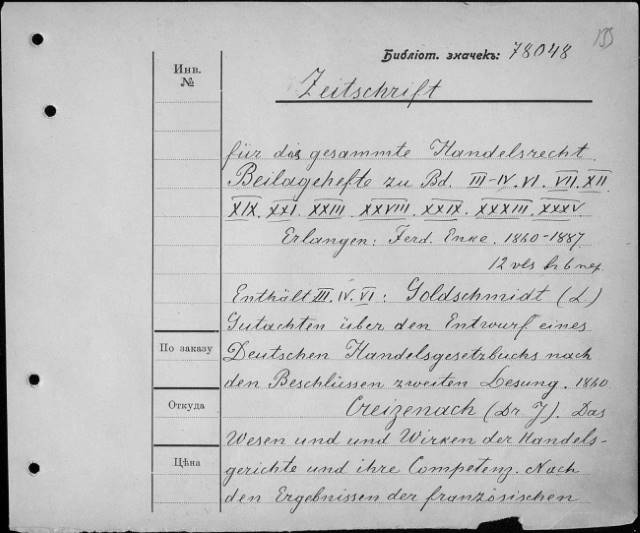 Библіот. значекъ: 78048
Инв. №
Zeitschrift
für das gesammte Handelsrecht.
Beilagehefte zu Bd. III-IV. VI. VII. XII
XIX. XXI. XXIII. XXVIII. XXIX. XXXIII. XXXV.
Erlangen: Ferd. Enke. 1860-1887
12 vls въ 6 пер.
Enthält III. IV. VI: Goldschmidt (L.)
Gutachten über den Entwurf eines
По заказу
Deutschen Handelsgesetzbuchs nach
den Beschlüssen zweiten Lesung. 1860
Откуда
Creizenach (Dr J). Das
Wesen und und Wirken der Handels-
Цѣна
gerichte und ihre Competenz. Nach
den Ergebnissen der französischen